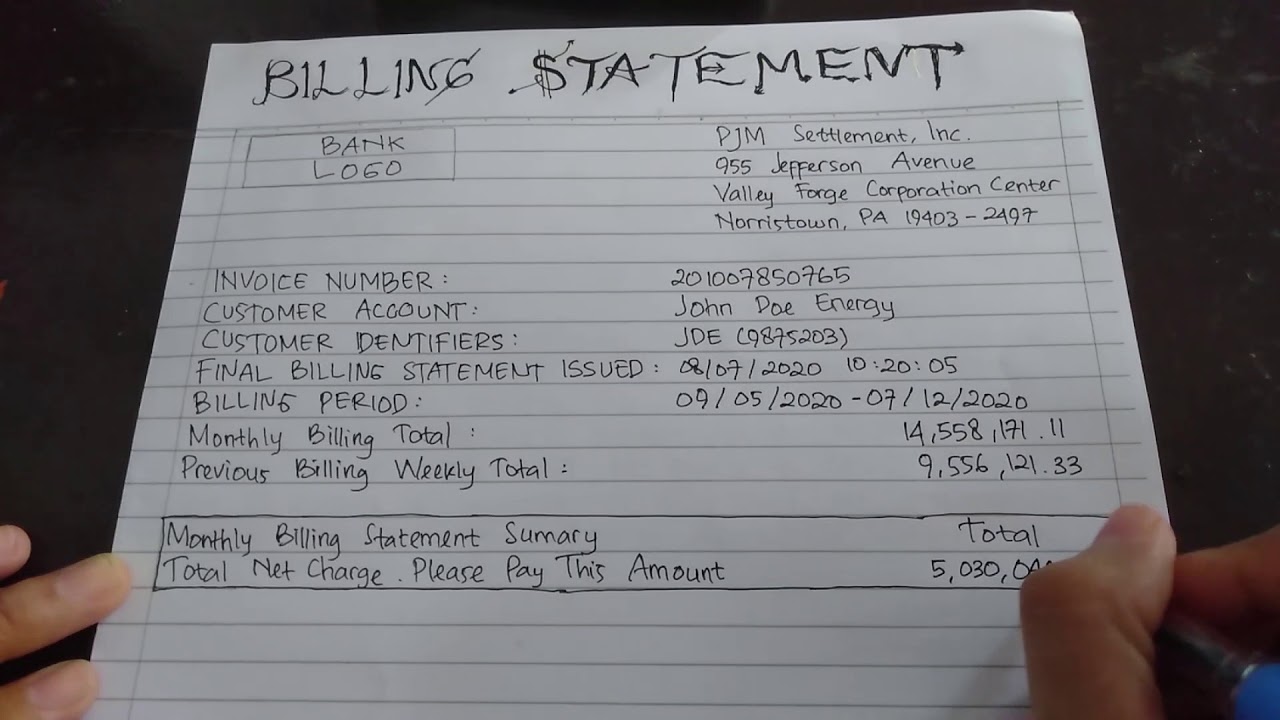 BILLING $TATEMENT
BANK
LOGO
PJM Settlement, Inc.
955 Jefferson Avenue
Valley Forge Corporation Center
Norristown, PA 19403-2497
INVOICE NUMBER: 201007850765
CUSTOMER ACCOUNT: John Doe Energy
CUSTOMER IDENTIFIERS: JDE (9875203)
FINAL BILLING STATEMENT ISSUED: 08/07/2020 10:20:05
BILLING PERIOD: 09/05/2020-07/12/2020
Monthly Billing Total: 14,558,171.11
Previous Billing Weekly Total: 9,556,121.33
Monthly Billing Statement Sumary Total
Total Net Charge. Please Pay This Amount